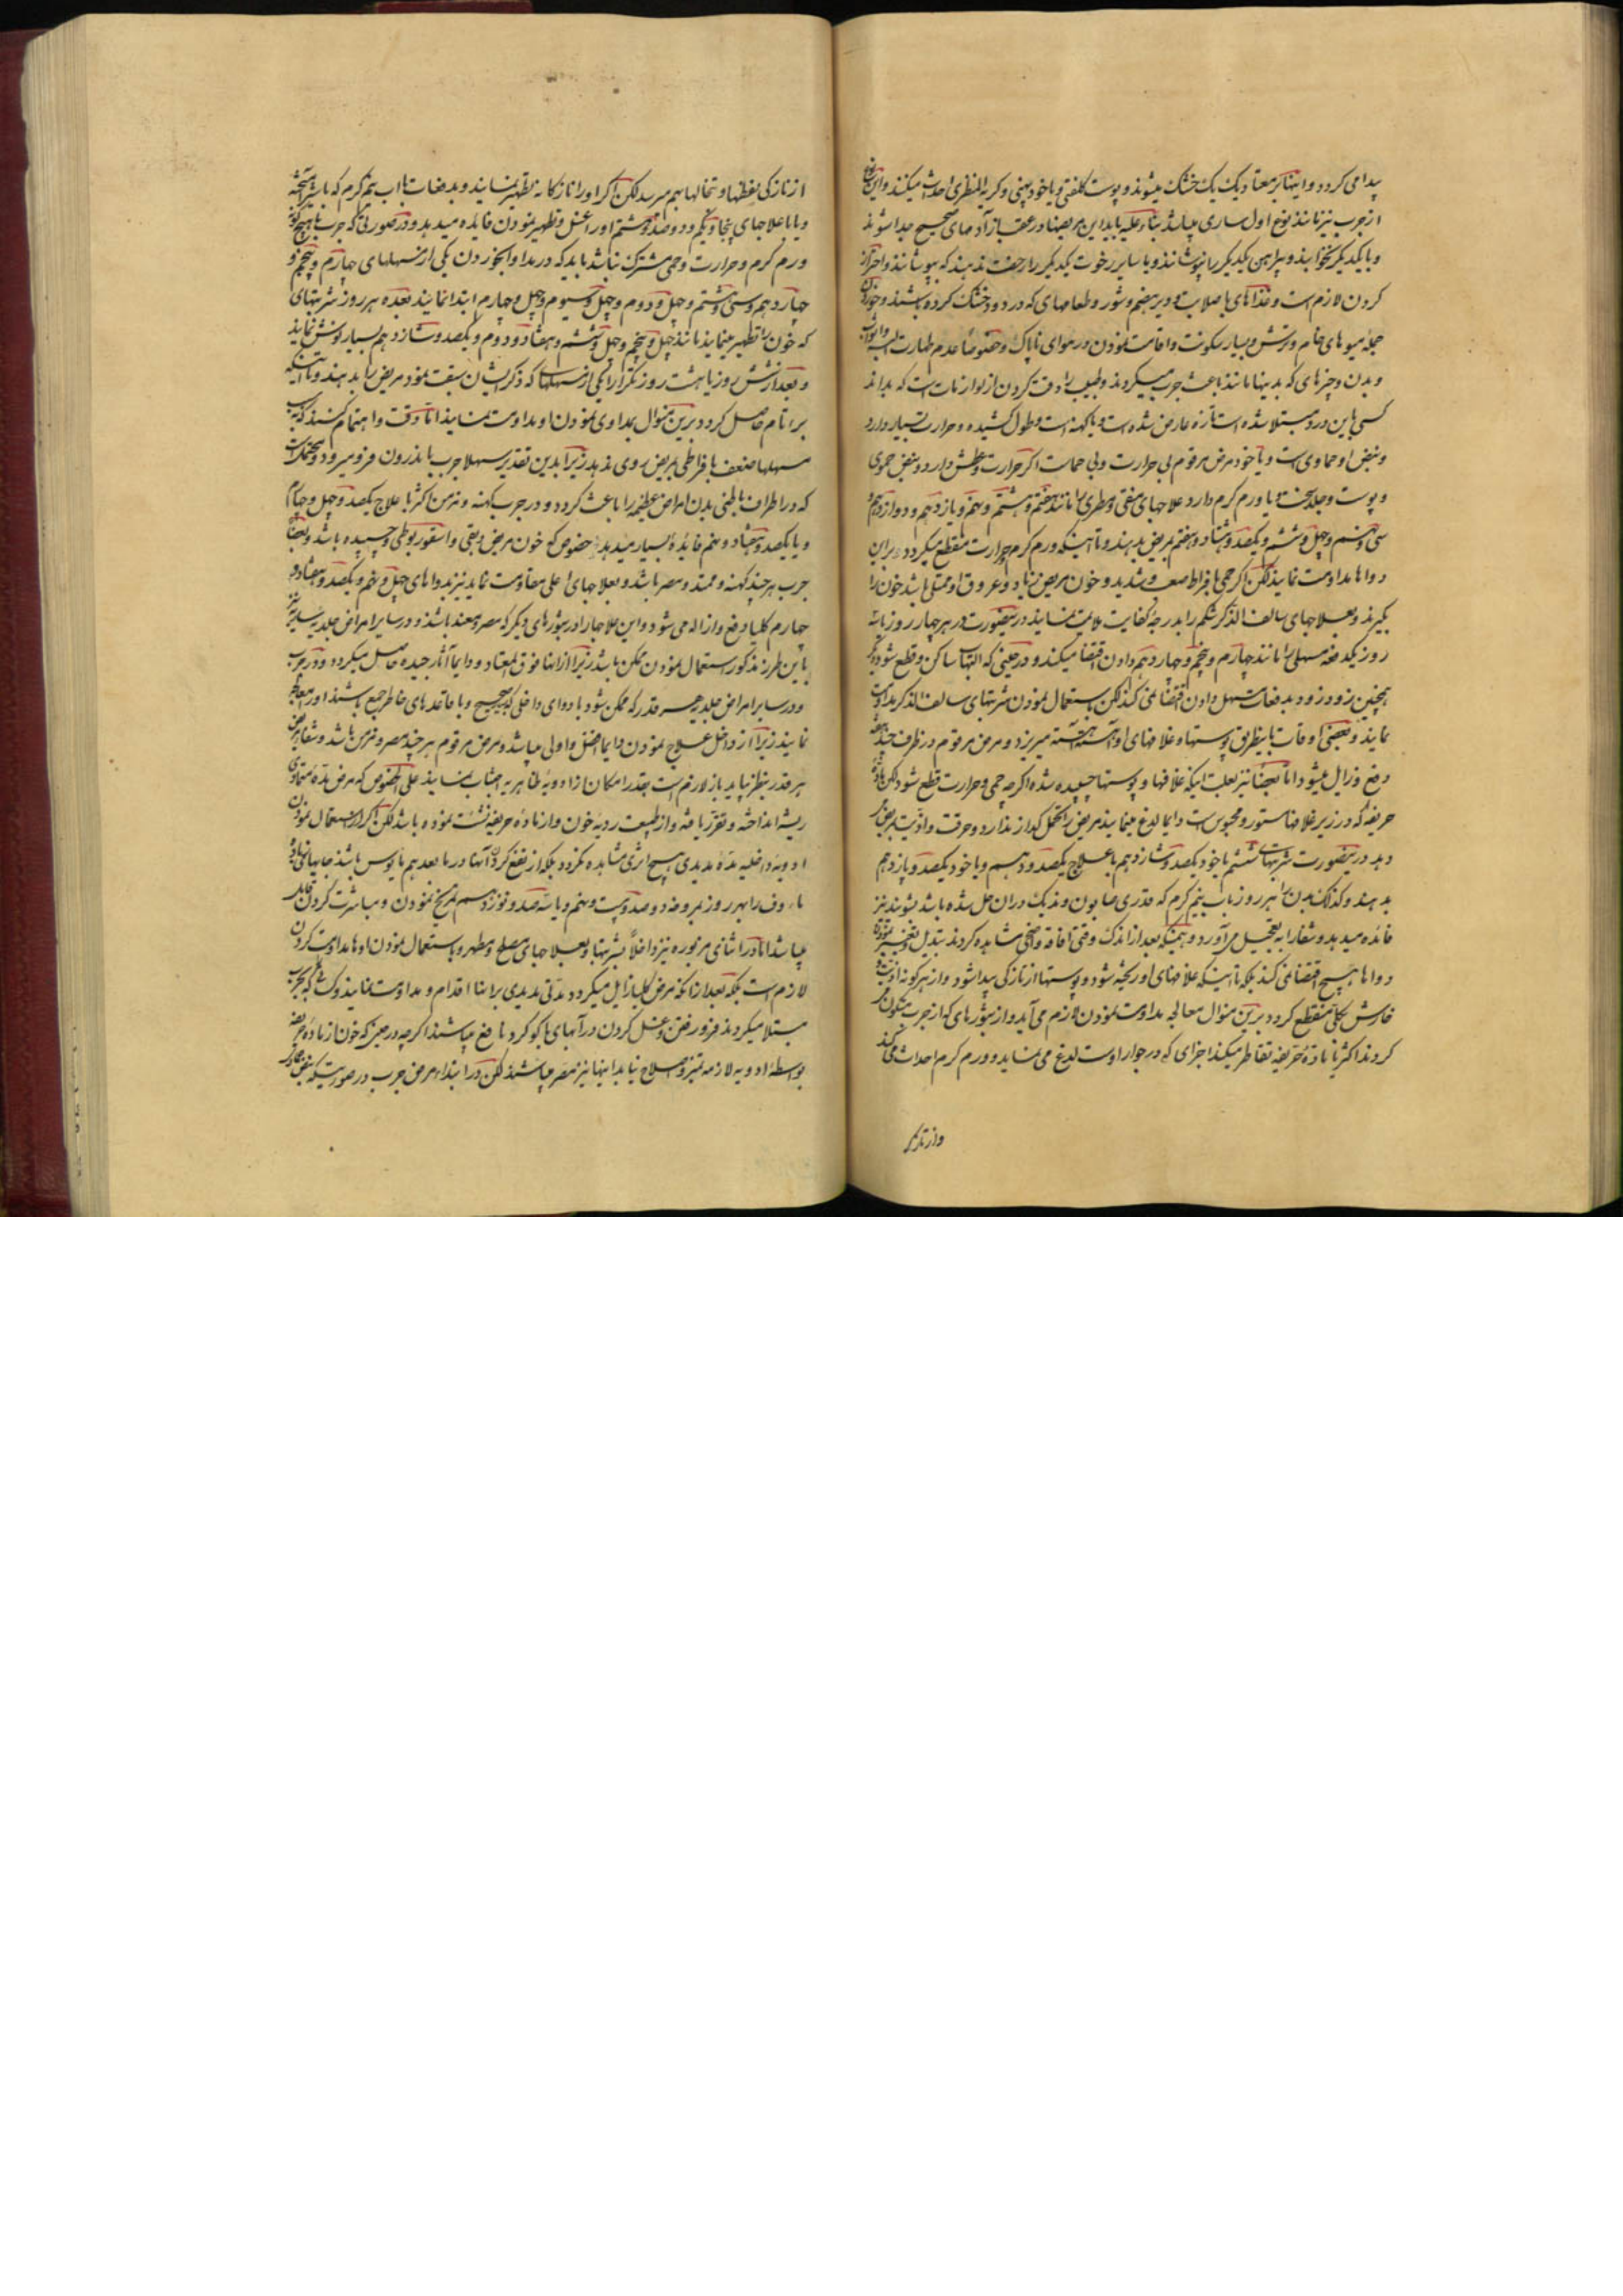 پیدا می کردد و اینها بر معتاد یک یک خشک میشوند و پوست کلفتی و یا خود پینی و کریه المنظری احداث میکنند و این نوع
از جرب نیز مانند نوع اول ساری میباشد بناء علیه باید این مریضها در عقب از آدمهای صحیح جدا شوند
و با یکدیگر نخوابند و پیراهن یکدیگر را نپوشانند و با سایر رخوت یکدیگر را رخصت ندهند که بپوشانند و احتراز
کردن لازم است و غذاهای با صلابت و دیر هضم و شور و طعامهای که در دود خشک کرده باشند و خوردن
جمله میوه های خام و ترش و بسیار سکونت و اقامت نمودن در هوای ناپاک و خصوصا عدم طهارت البسه و اثواب
و بدن و چیزهای که بدینها مانند باعث جرب میکردند و طبیب را دقت کردن از لوازمات است که بداند
کسی باین درد مبتلا شده است تازه عارض شده است و یا کهنه است و طول کشیده و حرارت بسیار دارد
و نبض او حماوی است و یا خود مرض مرقوم بی حرارت و بی حماست اگر حرارت و عطش دارد و نبض حموی
و پوست و جلد سخت و یا ورم کرم دارد علاجهای منقی و مطری را مانند هفتم و هشتم و نهم و یازدهم و دوازدهم و
سی و نهم و چهل و ششم و یکصد و هشتاد و هفتم بمریض بدهند و تا اینکه ورم کرم و حرارت منقطع میکردد برین
دواها مداومت نمایند لکن اگر حمی با فراط صعب و شدید و خون مریض زیاد و عروق او ممتلی باشد خون را
بکیرند و بعلاجهای سالف الذکر شکم را بدرجه کفایت ملایمت نمایند درینصورت در هر چهار روز یا سه
روز یکدفعه مسهلی را مانند چهارم و پنجم و چهاردهم دادن اقتضا میکند و در حینی که التهاب ساکن و قطع شود دیگر
همچنین زود زود بدفعات مسهل دادن اقتضا نمی کند لکن باستعمال نمودن شربتهای سالف الذکر مداومت
نمایند و بعضی اوقات باینطریق پوستها و غلافهای او آهسته آهسته میریزد و مرض مرقوم در ظرف چند هفته
دفع و زایل میشود اما بعضا نیز بعلت اینکه غلافها و پوستها چسپیده شده اگرچه حمی و حرارت قطع شود لکن ماده
حریفه که در زیر غلافها مستور و محبوس است دایما لدغ مینماید مریض را تحمل کدازنده دارد و حرقت و اذیت بمریض
دهد درینصورت شربتهای ششم یا خود یکصد و شانزدهم با علاج یکصد و دهم و یا خود یکصد و پانزدهم
بدهند و کذلک بدن را هر روز باب نیم کرم که قدری صابون و نمک دران حل شده باشد بشویند نیز
فائده میدهد و شفا را به تعجیل می آورد و همینکه بعد از اندک وقتی افاقه واضحی مشاهده کردند تبدیل و تغییر نمودن
دواها هیچ اقتضا نمی کند بلکه تا اینکه غلافهای او ریخته شود و پوستها از تازکی پیدا شود و از هر کونه اذیت و
خارش بکلی منقطع کردد برین منوال معالجه مداومت نمودن لازم می آید و از بثورهای که از جرب متکون
کردند اکثریا ماده حریفه تقاطر میکند اجزای که در جوار اوست لدغ می نماید و ورم کرم احداث می کند
از تازکی نفطها و تخالها بهم میرسد لکن اگر او را نازکانه تطهیر نمایند و بدفعات باب نیم کرم که با شیر آمیخته
و یا با علاجهای پنجاه و یکم و دو صد و هشتم او را غسل و تطهیر نمودن فایده میدهد و در صورتی که جرب با هیچ کونه
ورم کرم و حرارت و حمی مشترک نباشد باید که در مداوا بخوردن یکی از مسهلهای چهارم و پنجم و
چهاردهم و سی و هشتم و چهل و دوم و چهل و سیوم و چهل و چهارم ابتدا نمایند بعده هر روز شربتهای
که خون را تطهیر مینماید مانند چهل و پنجم و چهل و ششم و هفتاد و دوم و یکصد و شانزدهم بسیار نوش نماید
و بعد از شش روز یا هشت روز تکرارا یکی از مسهلها که ذکر ایشان سبقت نمود مریض را بدهند و تا اینکه
برء تام حاصل کردد برین منوال بمداوی نمودن او مداومت نمایند اما دقت و اهتمام کنند که بسبب
مسهلها ضعف با فراطی بمریض روی ندهد زیرا بدین تقدیر سهلا جرب باندرون فرو میرود و ممکنست
که در اطراف باطنی بدن امراض عظیمه را باعث کردد و در جرب کهنه و مزمن اکثریا علاج یکصد و چهل و چهارم
و یا یکصد و هفتاد و نهم فایده بسیار میدهد خصوص که خون مریض دبقی و اسقوربوطی و چسپیده باشد و بعضا
جرب هر چند کهنه و ممتد و مصر باشد و بعلاجهای اعلی مقاومت نماید نیز بدواهای چهل و نهم و یکصد و هفتاد و
چهارم کلیا دفع و ازاله می شود و این علاجها را در بثورهای دیگر که مصر و معند باشند و در سایر امراض جلدیه سایره نیز
باین طرز مذکور استعمال نمودن ممکن باشد زیرا ازانها فوق المعتاد و دایما آثار جیده حاصل میکردد و در جرب
و در سایر امراض جلدیه هر قدر که ممکن شود با دوای داخلی که صحیح و با قاعدهای خاطر جمع باشند او را معالجه
نمایند زیرا از داخل علاج نمودن دایما افضل و اولی میباشد و مرض مرقوم هر چند مصر و مزمن باشد و شفا
هر قدر بنظر نیاید باز لازم است بقدر امکان از ادویه ظاهریه اجتناب نمایند علی الخصوص که مرض مدة متمادی
ریشه انداخته و تقرر یافته و از طبیعت ردیه خون و از ماده حریفه نشئت نموده باشد لکن اگر از استعمال نمودن
ادویه داخلیه مدة مدیدی هیچ اثری مشاهده نکردد بلکه از نفع کردن آنها در ما بعد هم مایوس باشند جایهای ماده
ماوف را بهر روز بمروخه دو صد و بیست و نهم و یا سه صد و نوزدهم تمریخ نمودن و مباشرت کردن فایده
میباشد اما در اثنای مزبوره نیز داخلا بشربتها و بعلاجهای مصلح و مطهر و باستعمال نمودن اوها مداومت کردن
لازم است بلکه بعد از انکه مرض کلیا زایل میکردد مدتی مدیدی بر اینها اقدام و مداومت نمایند و کسانیکه بجرب
مبتلا میکردند فرو رفتن و غسل کردن در آبهای با کوکرد نافع میباشند اگرچه در حین که خون از ماده حریفه
بواسطه ادویه لازمه تمیز و اصلاح نیابد اینها نیز مضر میباشند لکن در ابتداء مرض جرب در صورتیکه نبض
و از تازکی